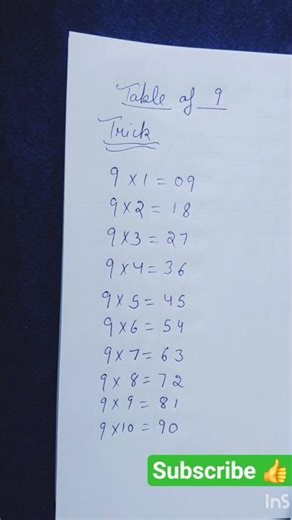 Table of 9
Trick
9 × 1 = 09
9 × 2 = 18
9 × 3 = 27
9 × 4 = 36
9 × 5 = 45
9 × 6 = 54
9 × 7 = 63
9 × 8 = 72
9 × 9 = 81
9 × 10 = 90
Subscribe 👍
InS